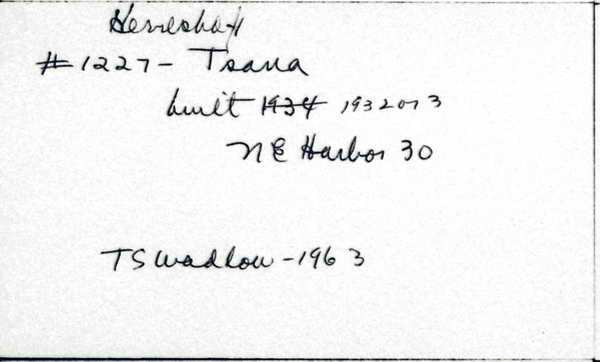 Herreshoff
#1227 - Tsana
built 1934 1932 or 3
NE Harbor 30
TS Wadlow - 1963